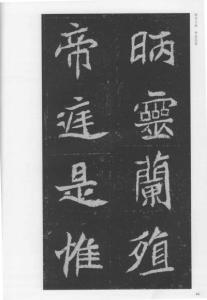 昞靈蘭殖
帝庭是惟